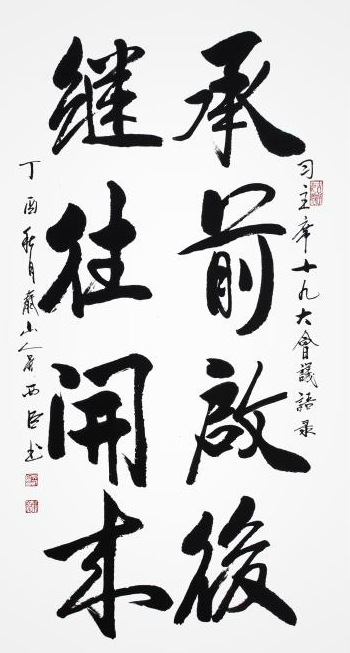 习主席十九大會議語录
承前啟後
继往開来
丁酉秋月嵗山人 西臣书